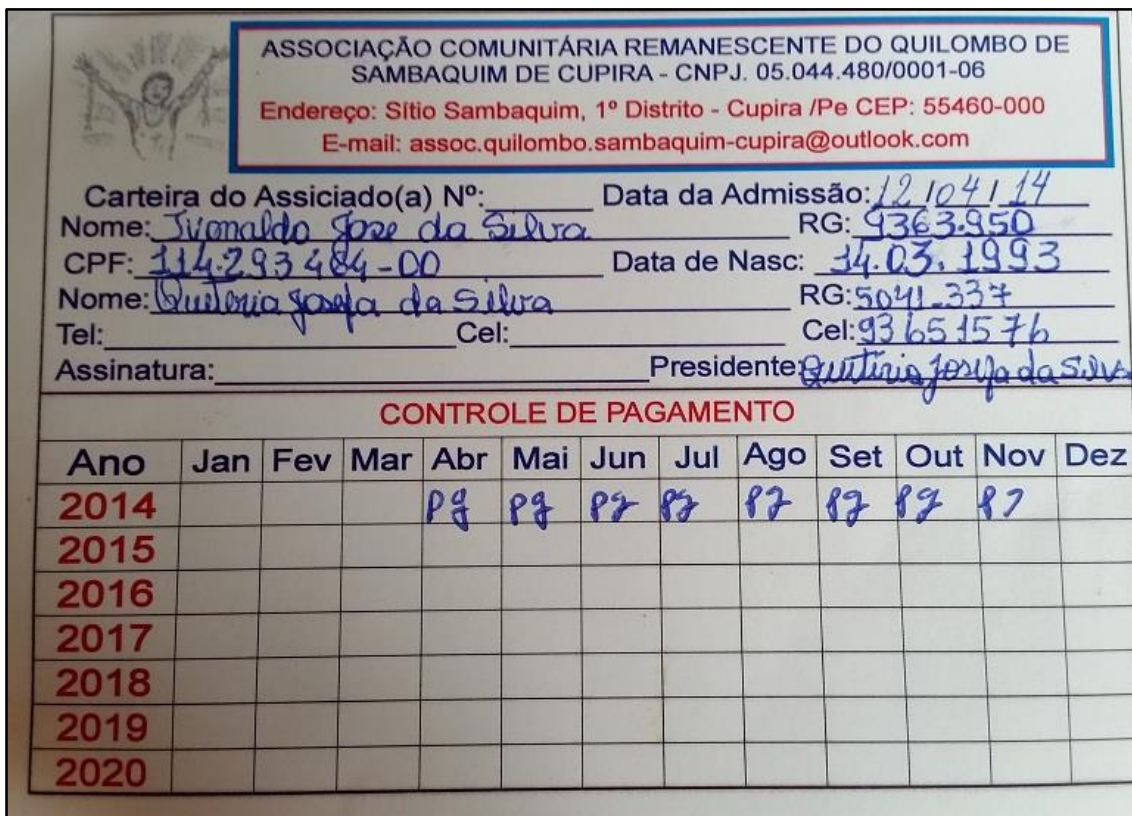 ASSOCIAÇÃO COMUNITÁRIA REMANESCENTE DO QUILOMBO DE
SAMBAQUIM DE CUPIRA - CNPJ. 05.044.480/0001-06
Endereço: Sítio Sambaquim, 1º Distrito - Cupira /Pe CEP: 55460-000
E-mail: assoc.quilombo.sambaquim-cupira@outlook.com
Carteira do Assiciado(a) Nº: Data da Admissão: 12/04/14
Nome: Ivonaldo Jose da Silva RG: 9363.950
CPF: 114.293484-00 Data de Nasc: 14.03.1993
Nome: Quiteria Josefa da Silva RG: 5041-337
Tel: Cel: Cel: 93651576
Assinatura: Presidente: Quitéria Josefa da Silva
CONTROLE DE PAGAMENTO
Ano Jan Fev Mar Abr Mai Jun Jul Ago Set Out Nov Dez
2014 pg pg pg pg pg pg pg pg
2015
2016
2017
2018
2019
2020